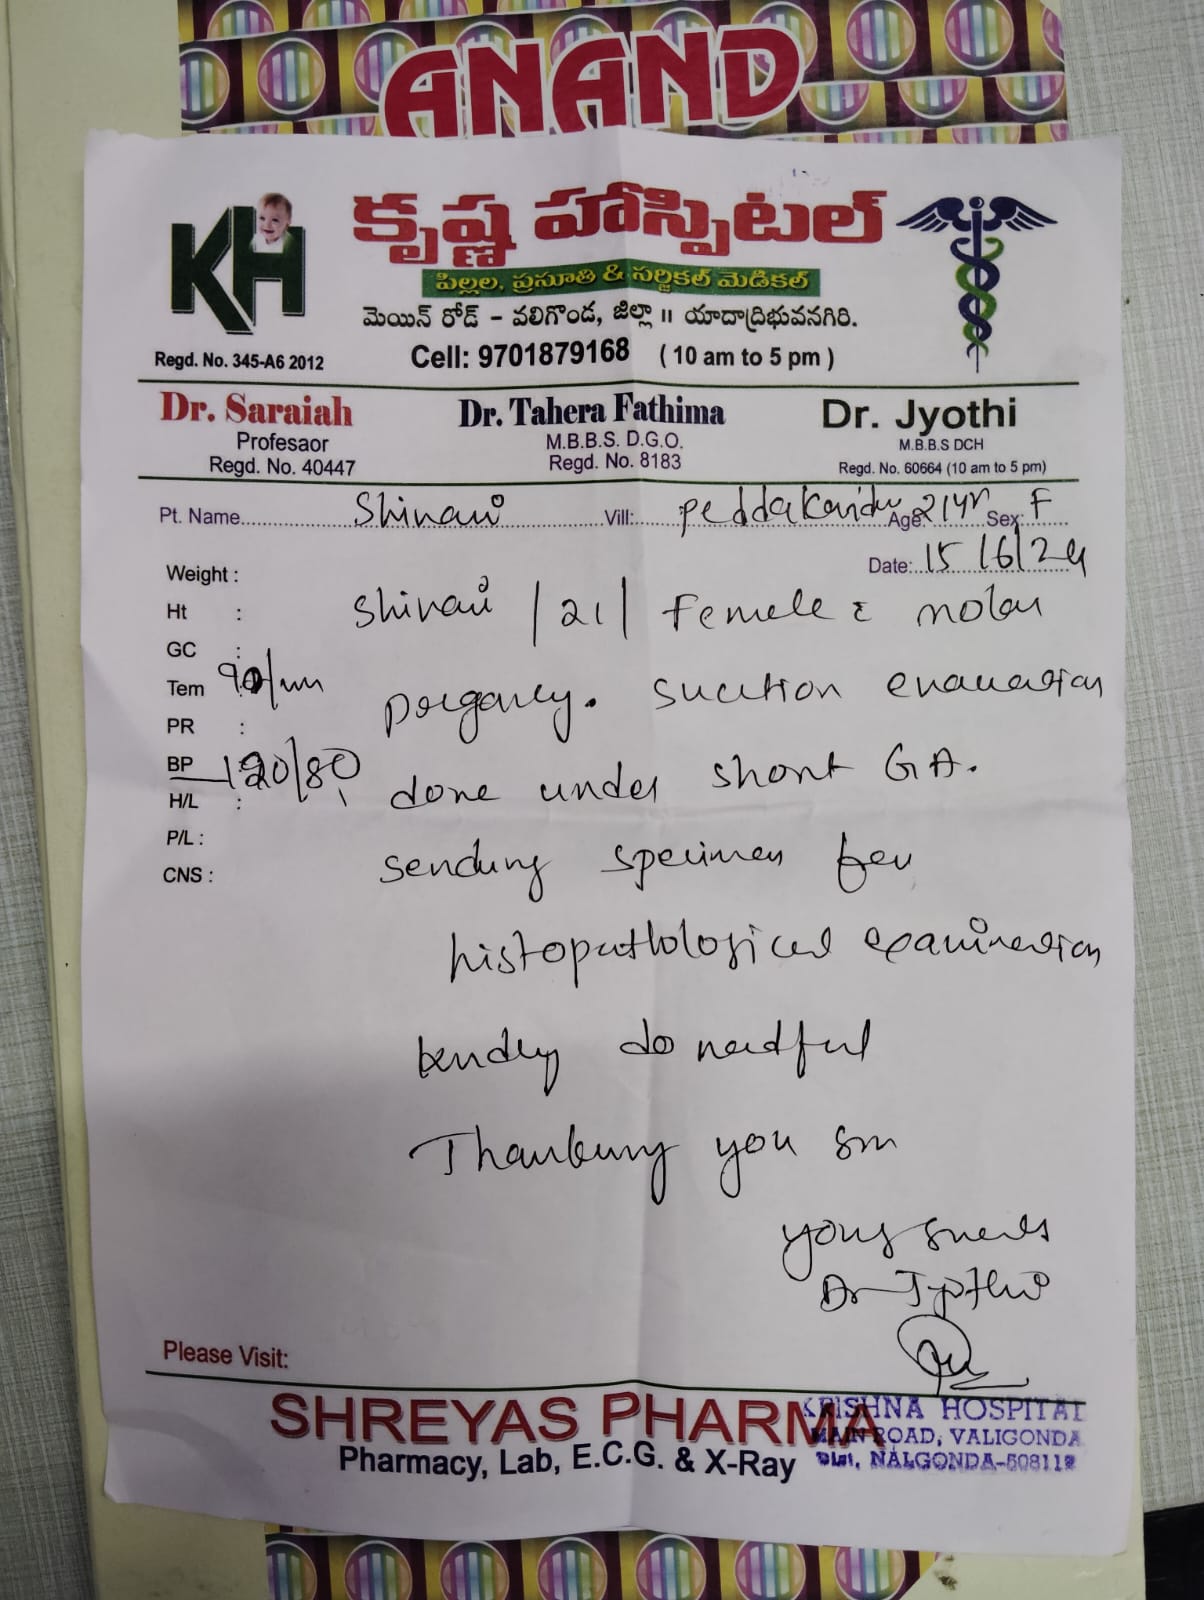 ANAND
KH
కృష్ణ హాస్పిటల్
పిల్లల, ప్రసూతి & సర్జికల్ మెడికల్
మెయిన్ రోడ్ - వలిగొండ, జిల్లా ॥ యాదాద్రిభువనగిరి.
Regd. No. 345-A6 2012
Cell: 9701879168 ( 10 am to 5 pm )
Dr. Saraiah
Profesaor
Regd. No. 40447
Dr. Tahera Fathima
M.B.B.S. D.G.O.
Regd. No. 8183
Dr. Jyothi
M.B.B.S DCH
Regd. No. 60664 (10 am to 5 pm)
Pt. Name Shivani Vill: Age: 21yr Sex: F
Date: 15/6/24
Weight :
Ht :
GC :
Tem 90/mn
PR :
BP 120/80
H/L :
P/L :
CNS :
Shivani /21/ Female c molar
poegancy. suction evacuation
done under short GA.
sending specimen for
histopathological examination
kindly do needful
Thanking you sm
yours
Dr Jyothi
Please Visit:
SHREYAS PHARMA
Pharmacy, Lab, E.C.G. & X-Ray
KRISHNA HOSPITAL
MAIN ROAD, VALIGONDA
Dist. NALGONDA-508112